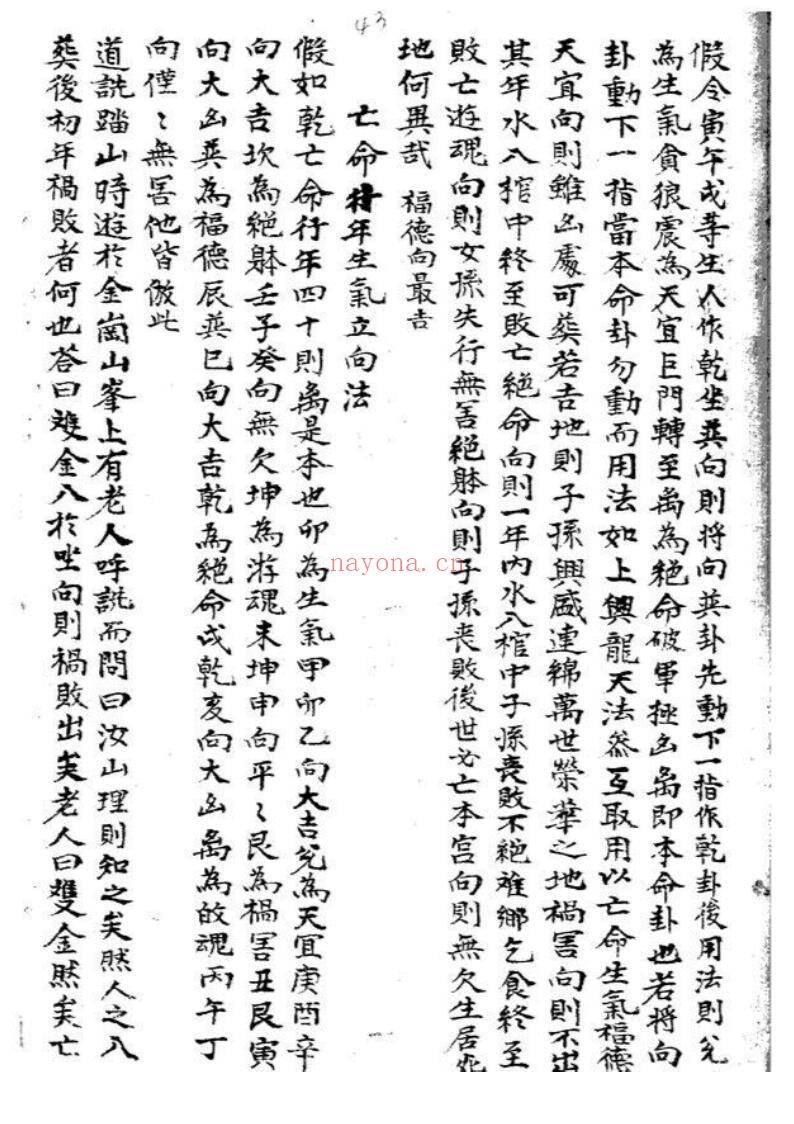 43
假令寅午戌等生人作乾坐巽向則将向巽卦先動下一指作乾卦後用法則兌
為生氣貪狼震為天宜巨門轉至离為絶命破軍極凶离即本命卦也若将向
卦動下一指當本命卦勿動而用法如上與龍天法叅互取用以亡命生氣福德
天宜向則雖凶處可葬若吉地則子孫興盛連綿萬世榮華之地禍害向則不出
其年水入棺中終至敗亡絶命向則一年內水入棺中子孫丧敗不絶难鄉乞食終至
敗亡遊魂向則女孫失行無害絶躰向則子孫丧敗後世必亡本宮向則無欠生居死
地何異哉 福德向最吉
亡命行年生氣立向法
假如乾亡命行年四十則离是本也卯為生氣甲卯乙向大吉兌為天宜庚酉辛
向大吉坎為絶躰壬子癸向無欠坤為游魂未坤申向平〻艮為禍害丑艮寅
向大凶巽為福德辰巽巳向大吉乾為絶命戌乾亥向大凶离為故魂丙午丁
向僅〻無害他皆倣此
道詵踏山時遊於金崗山峯上有老人呼詵而問曰汝山理則知之矣然人之入
葬後初年禍敗者何也荅曰雙金入於坐向則禍敗出矣老人曰雙金然矣亡
nayona.cn